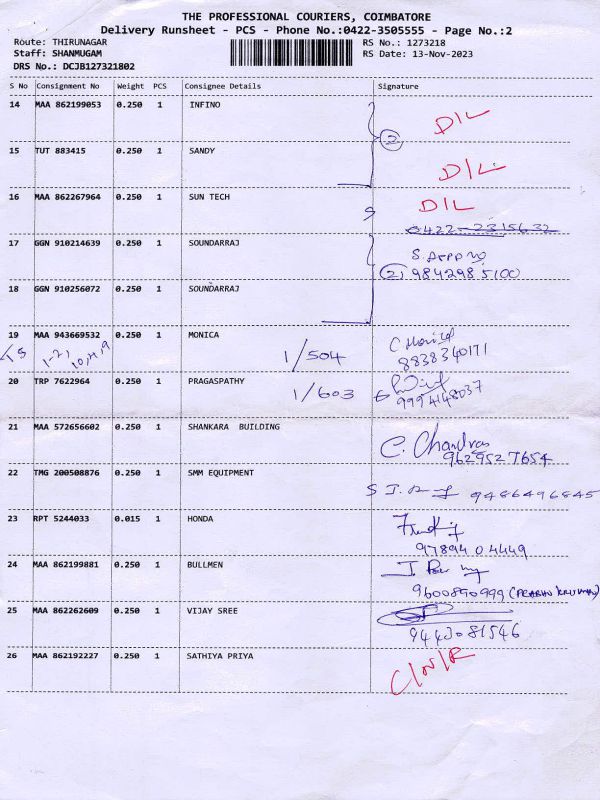 THE PROFESSIONAL COURIERS, COIMBATORE
Delivery Runsheet - PCS - Phone No.:0422-3505555 - Page No.:2
Route: THIRUNAGAR RS No.: 1273218
Staff: SHANMUGAM RS Date: 13-Nov-2023
DRS No.: DCJB127321802
S No Consignment No Weight PCS Consignee Details Signature
14 MAA 862199053 0.250 1 INFINO D/L
2
15 TUT 883415 0.250 1 SANDY D/L
16 MAA 862267964 0.250 1 SUN TECH D/L
0422-2315632
17 GGN 910214639 0.250 1 SOUNDARRAJ
2 9842985100
18 GGN 910256072 0.250 1 SOUNDARRAJ
19 MAA 943669532 0.250 1 MONICA 1/504
8838340171
20 TRP 7622964 0.250 1 PRAGASPATHY 1/603
9994148037
21 MAA 572656602 0.250 1 SHANKARA BUILDING C. Chandras
9629527654
22 TMG 200508876 0.250 1 SMM EQUIPMENT
9486496845
23 RPT 5244033 0.015 1 HONDA
9789404449
24 MAA 862199881 0.250 1 BULLMEN
9600890999
25 MAA 862262609 0.250 1 VIJAY SREE
9443081546
26 MAA 862192227 0.250 1 SATHIYA PRIYA C/N/R